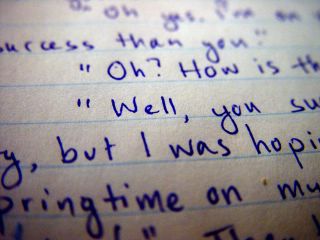 " Oh yes. I'm on
success than you."
" Oh? How is th
" Well, you su
y, but I was hopi
pringtime on mu